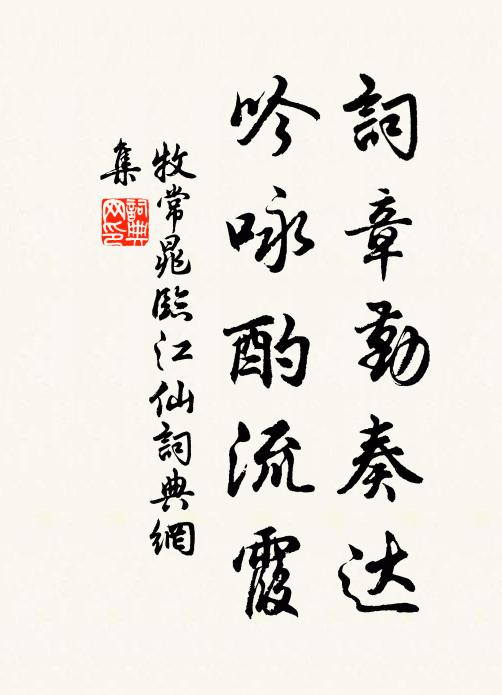 詞章勤奏达
吟咏酌流霞
牧常晁臨江仙詞典網
集
詞典网印